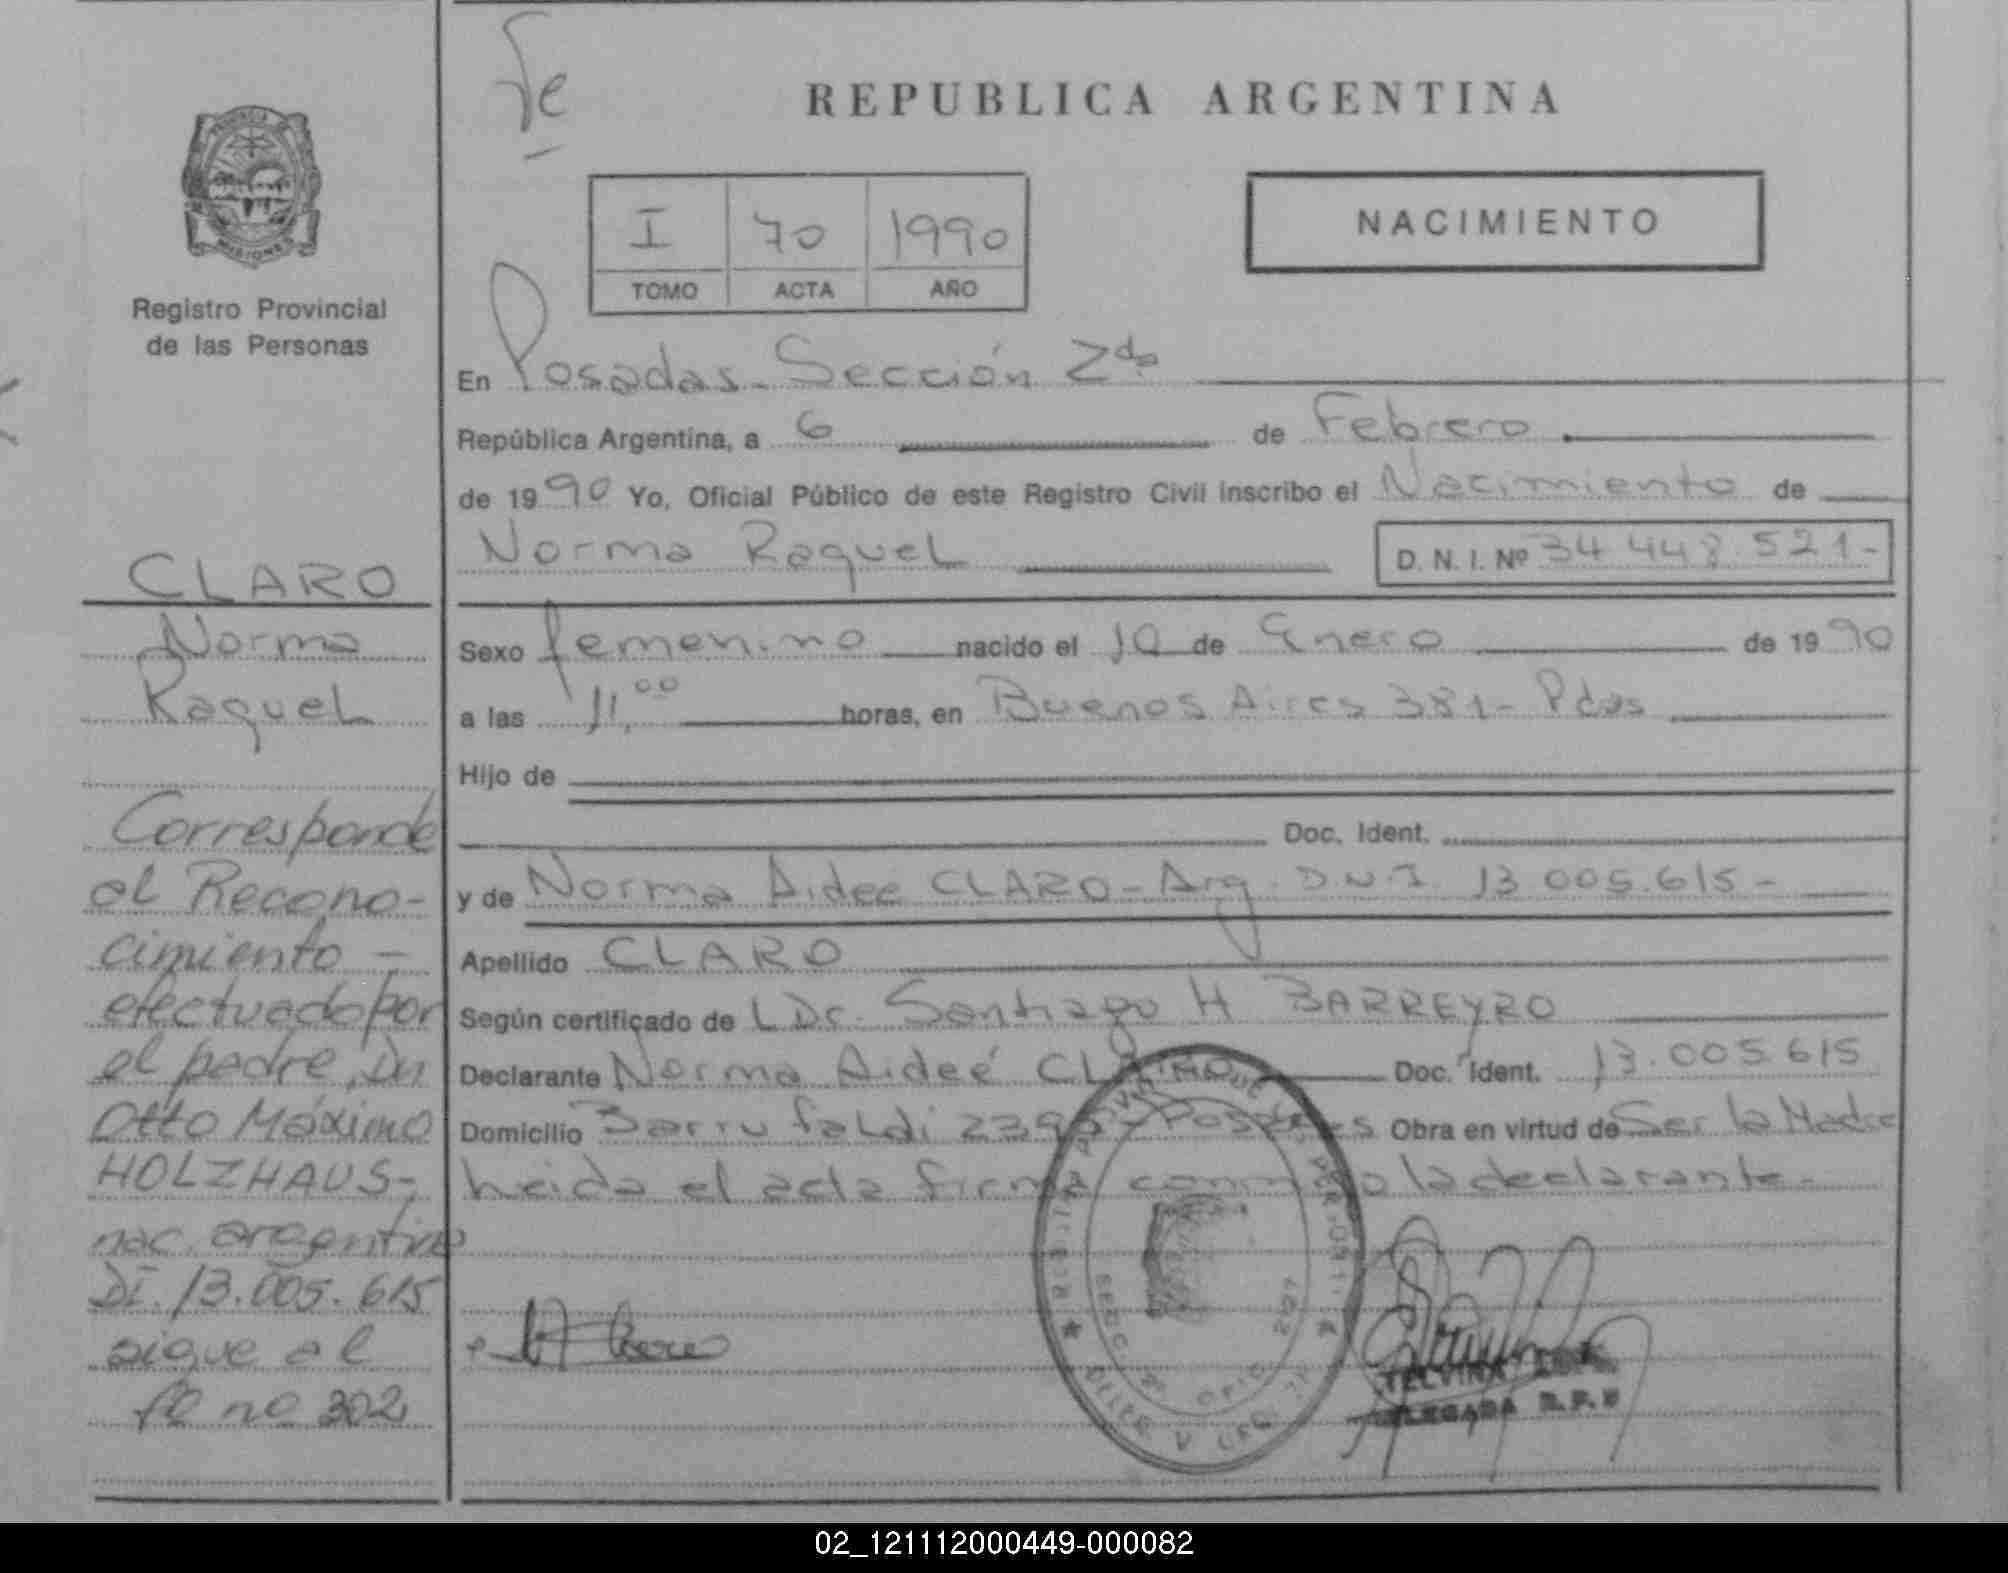 Fe
REPUBLICA ARGENTINA
I 70 1990
TOMO ACTA AÑO
NACIMIENTO
Registro Provincial
de las Personas
En Posadas - Sección 2da
República Argentina, a 6 de Febrero
de 1990 Yo, Oficial Público de este Registro Civil inscribo el Nacimiento de
Norma Raquel D. N. I. Nº 34 448.521-
Sexo femenino nacido el 10 de Enero de 1990
a las 11,00 horas, en Buenos Aires 381 - Pdas
Hijo de
Doc. Ident.
y de Norma Aidee CLARO - Arg. D.N.I. 13 005.615 -
Apellido CLARO
Según certificado de L Dr. Santiago H BARREYRO
Declarante Norma Aideé CLARO Doc. Ident. 13.005.615
Domicilio Posadas Obra en virtud de Ser la Madre
heida el acta firma conmigo la declarante -
CLARO
Norma
Raquel
Corresponde
al Recono-
cimiento -
efectuado por
el padre, Dn
Otto Máximo
HOLZHAUS-,
nac. argentino
DI. 13.005.615
sigue al
fº no 302
TELVINA
DELEGADA R.P.P
02_121112000449-000082